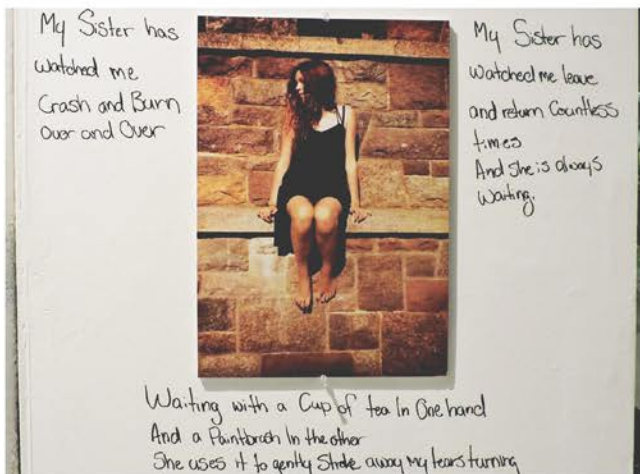 My Sister has
watched me
Crash and Burn
Over and Over
My Sister has
Watched me leave
and return Countless
times
And she is always
Waiting.
Waiting with a Cup of tea In One hand
And a Paintbrush In the other
She uses it to gently Stroke away My tears turning